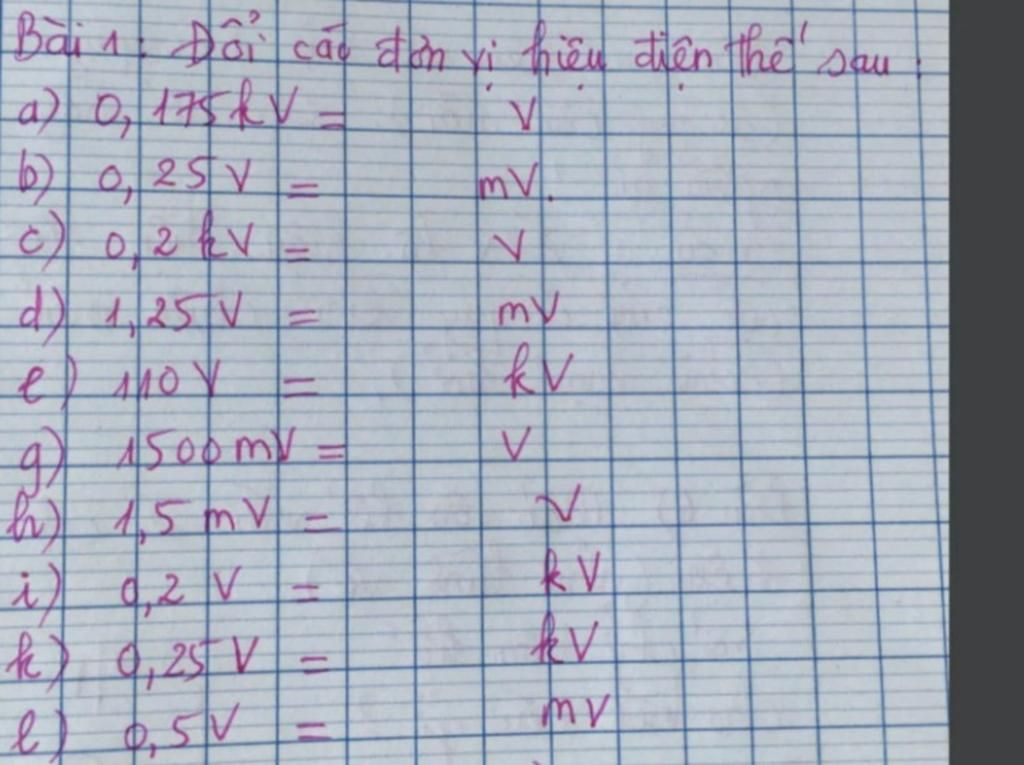 Bài 1: Đổi các đơn vị hiệu điện thế sau:
a) 0,175kV = V
b) 0,25V = mV.
c) 0,2kV = V
d) 1,25V = mV
e) 110V = kV
g) 1500mV = V
h) 1,5mV = V
i) 0,2V = kV
k) 0,25V = kV
l) 0,5V = mV